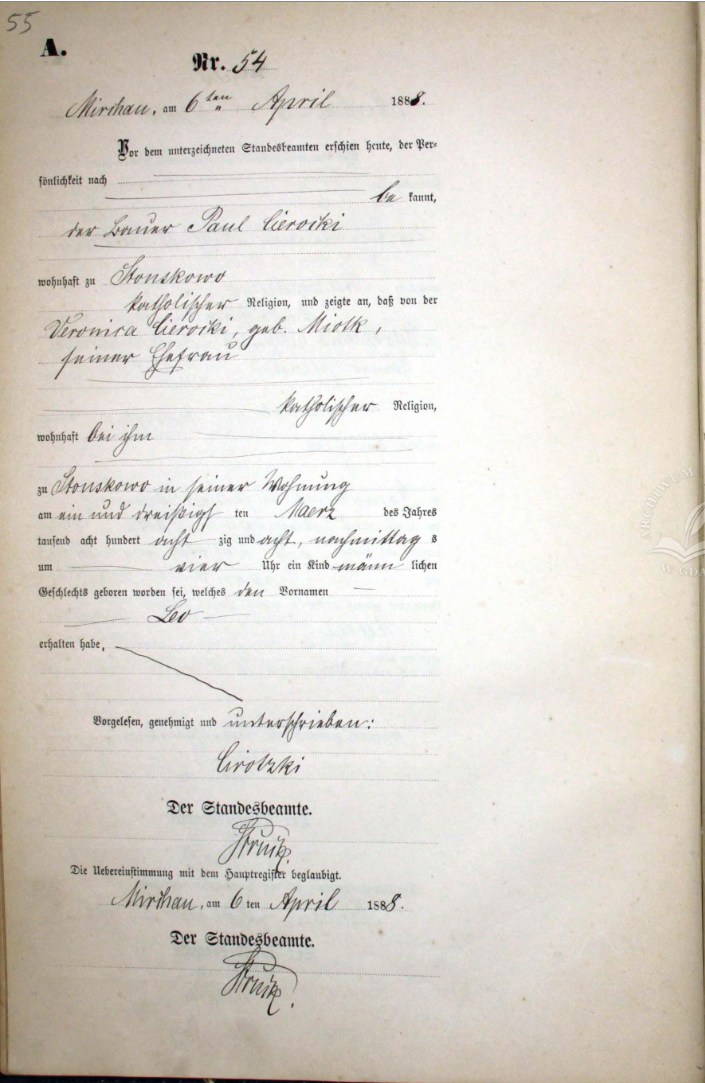 55
A.
Nr. 54
Mirchau, am 6ten April 1888.
Vor dem unterzeichneten Standesbeamten erschien heute, der Per=
sönlichkeit nach
be kannt,
der Bauer Paul Cierocki
wohnhaft zu Stonskowo
katholischer Religion, und zeigte an, daß von der
Veronica Cierocki, geb. Miotk,
seiner Ehefrau
katholischer Religion,
wohnhaft bei ihm
zu Stonskowo in seiner Wohnung
am ein und dreißigst ten Maerz des Jahres
tausend acht hundert acht zig und acht, nachmittag s
um vier Uhr ein Kind männ lichen
Geschlechts geboren worden sei, welches den Vornamen
Leo
erhalten habe.
Vorgelesen, genehmigt und unterschrieben:
Cirotzki
Der Standesbeamte.
Die Uebereinstimmung mit dem Hauptregister beglaubigt.
Mirchau, am 6 ten April 1888.
Der Standesbeamte.
ARCHIWUM
W GDA